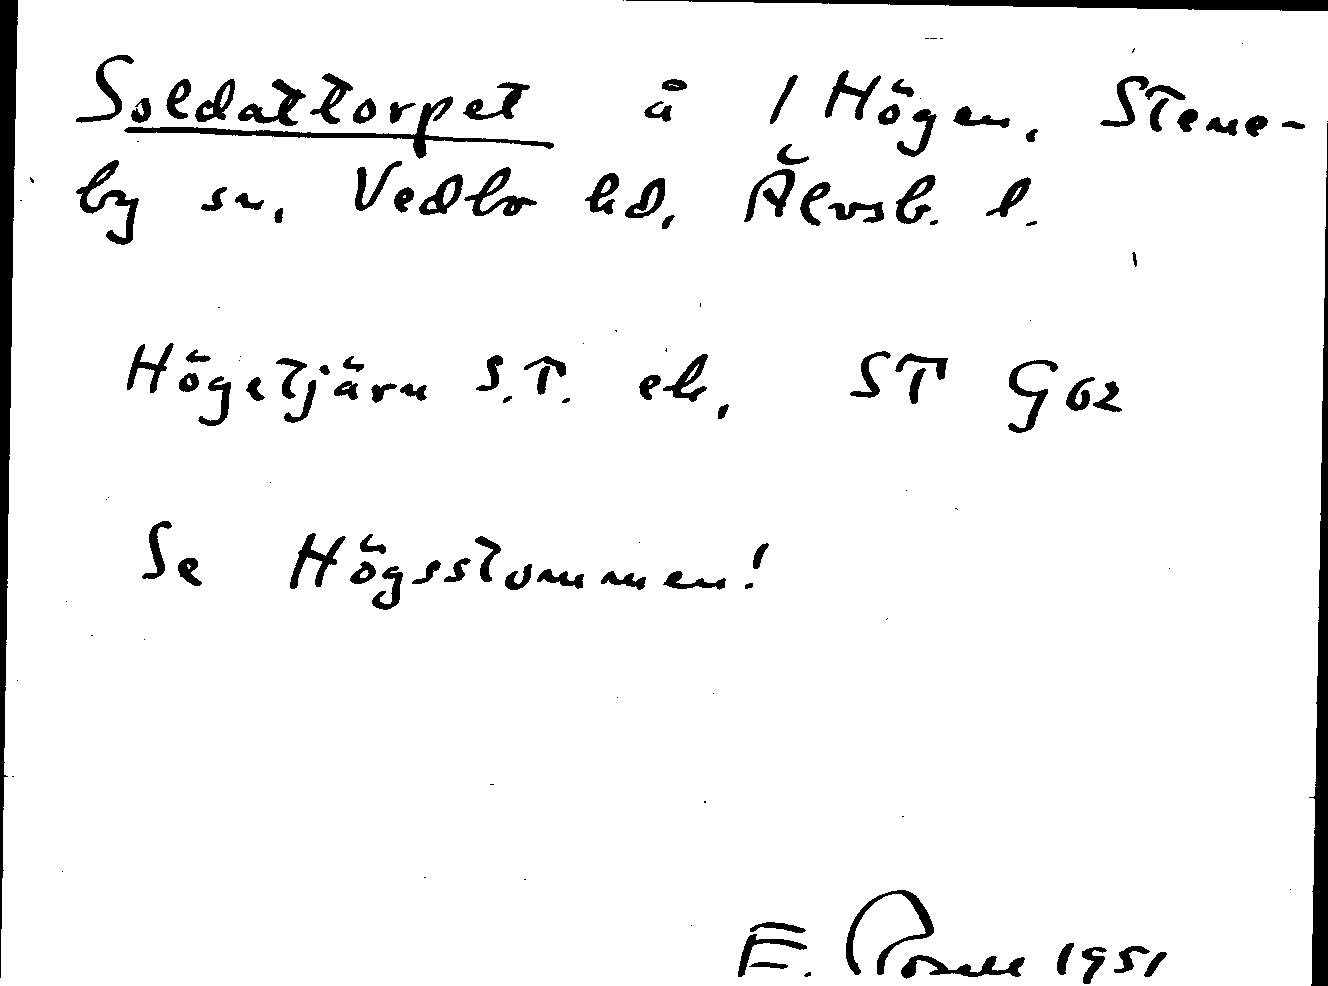 Soldattorpet å 1 Högen, Stene-
by sn, Vedbo hd, Älvsb. l.
Högetjärn S.T. ek, ST G62
Se Högsstommen!
E. Rosell 1951